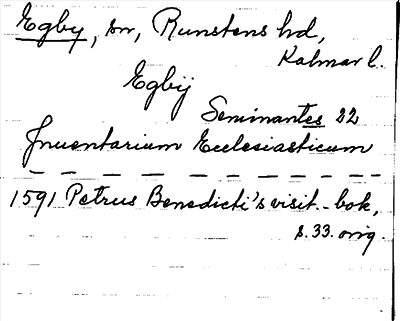 Egby, sn, Runstens hd,
Kalmar l.
Egbÿ
Seminantes 22
Inuentarium Ecclesiasticum
1591 Petrus Benedicti's visit.-bok,
s. 33. orig.